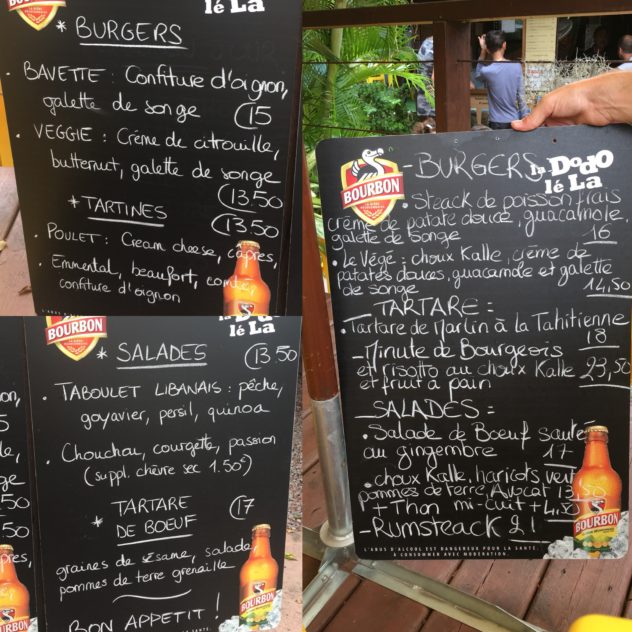 lé La
* BURGERS
• BAVETTE : Confiture d'oignon,
galette de songe (15
• VEGGIE : Crème de citrouille,
butternut, galette de songe
(13.50
* TARTINES
(13.50
• POULET : Cream cheese, câpres,
• Emmental, beaufort, comté,
confiture d'oignon
BOURBON
lé La
* SALADES (13.50
• TABOULET LIBANAIS : pêche,
goyavier, persil, quinoa
• Chouchou, courgette, passion
(suppl. chèvre sec 1.50€)
* TARTARE (17
DE BOEUF
graines de sésame, salade,
pommes de terre grenaille
BON APPETIT !
BOURBON
BOURBON
- BURGERS
La Dodo
lé La
• Steack de poisson frais
crème de patate douce, guacamole,
galette de songe 16
• Le Végé : choux Kalle, crème de
patates douces, guacamole et galette
de songe 14,50
TARTARE =
• Tartare de Marlin à la Tahitienne
18
- Minute de Bourgeois
et risotto au choux Kalle 23,50
et fruit à pain
SALADES =
• Salade de Boeuf sauté
au gingembre 17
• choux Kalle, haricots vert
pommes de terre, Avocat 13,50
+ Thon mi-cuit +4,50
- Rumsteack 21
BOURBON
L'ABUS D'ALCOOL EST DANGEREUX POUR LA SANTÉ.
À CONSOMMER AVEC MODÉRATION.